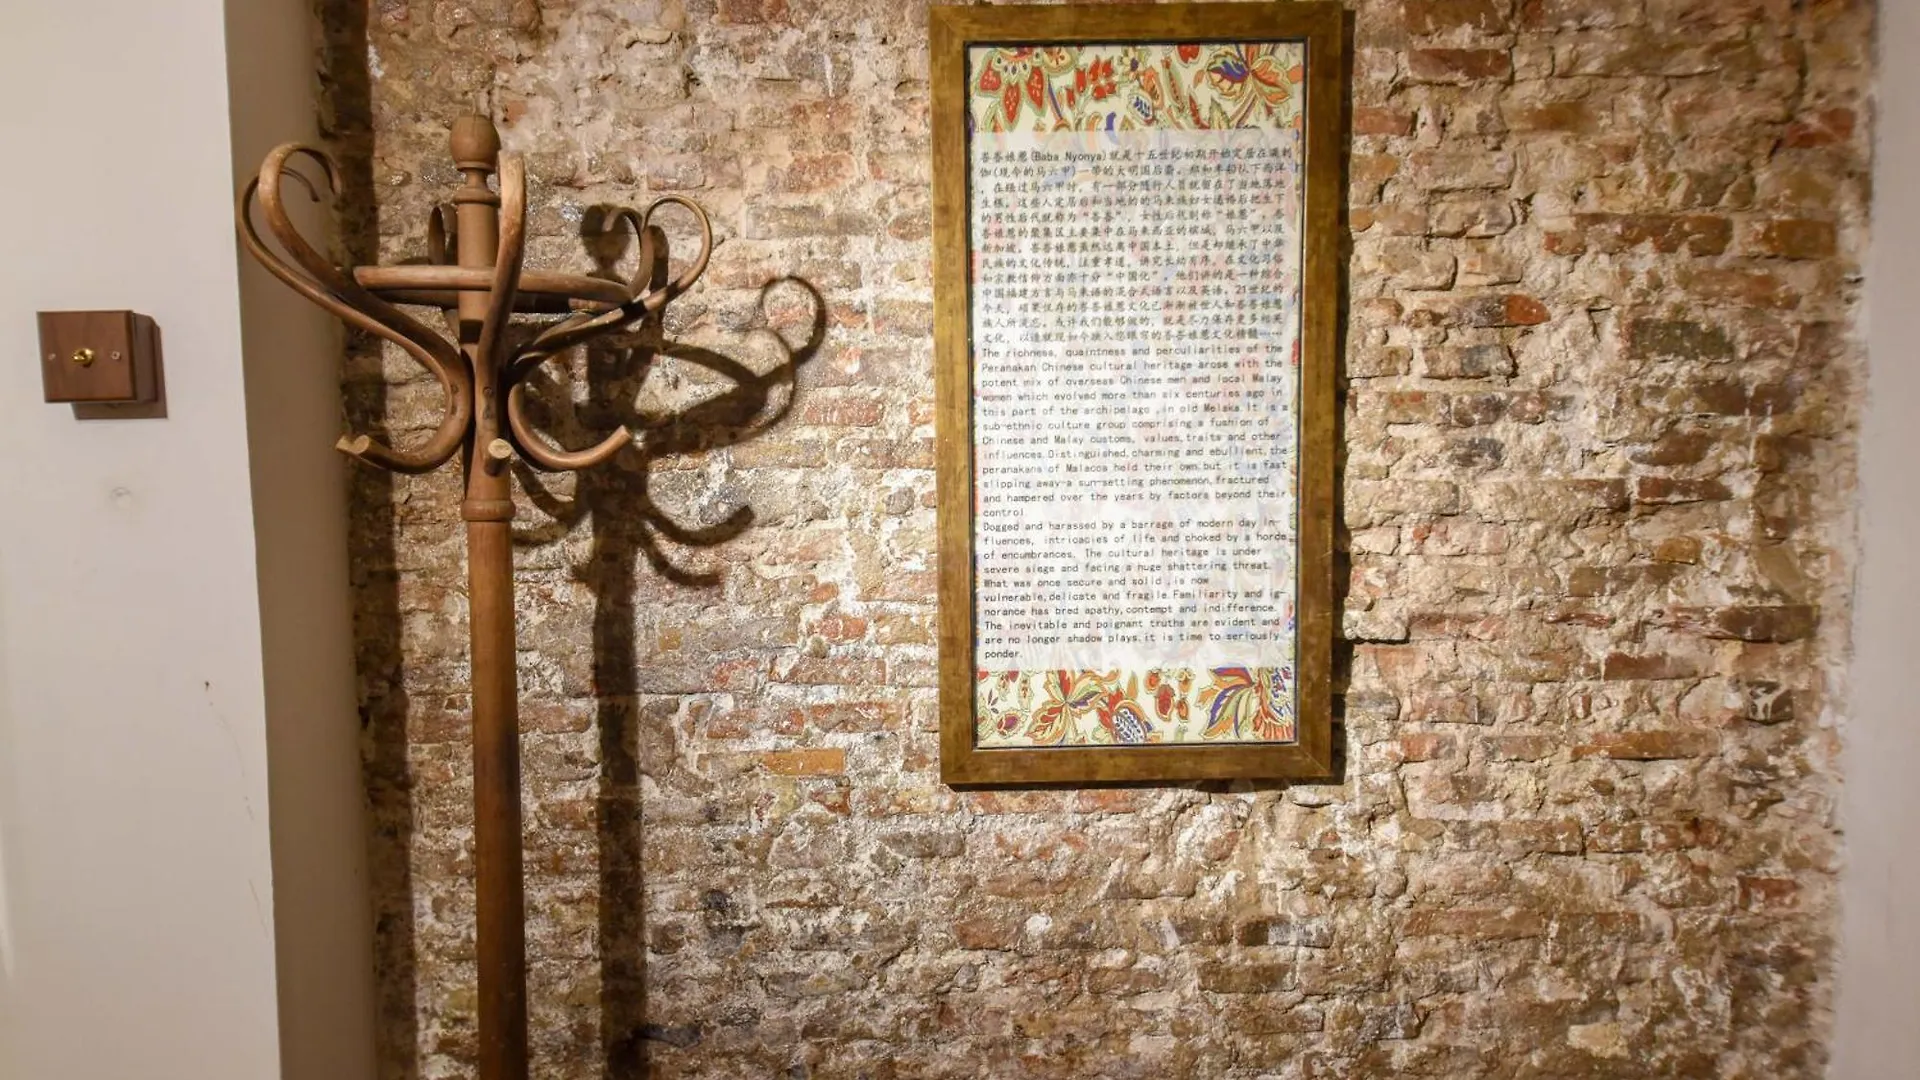 峇峇娘惹(Baba Nyonya)就是十五世纪初期开始定居在满剌
伽(现今的马六甲)一带的大明国后裔。郑和率船队下西洋
，在经过马六甲时，有一部分随行人员就留在了当地落地
生根。这些人定居后和当地的的马来族妇女通婚后把生下
的男性后代就称为“峇峇”，女性后代则称“娘惹”。峇
峇娘惹的聚集区主要集中在马来西亚的槟城，马六甲以及
新加坡。峇峇娘惹虽然远离中国本土，但是却继承了中华
民族的文化传统，注重孝道，讲究长幼有序，在文化习俗
和宗教信仰方面亦十分“中国化”。他们讲的是一种综合
中国福建方言与马来语的混合式语言以及英语。21世纪的
今天，硕果仅存的峇峇娘惹文化已渐渐被世人和峇峇娘惹
族人所淡忘。或许我们能够做的，就是尽力保存更多相关
文化，以造就现如今映入您眼帘的峇峇娘惹文化精髓……
The richness, quaintness and perculiarities of the
Peranakan Chinese cultural heritage arose with the
potent mix of overseas Chinese men and local Malay
women which evolved more than six centuries ago in
this part of the archipelago ,in old Melaka.It is a
sub-ethnic culture group comprising a fushion of
Chinese and Malay customs, values,traits and other
influences.Distinguished,charming and ebullient,the
peranakans of Malacca held their own but it is fast
slipping away-a sun-setting phenomenon,fractured
and hampered over the years by factors beyond their
control
Dogged and harassed by a barrage of modern day in-
fluences, intricacies of life and choked by a horde
of encumbrances. The cultural heritage is under
severe siege and facing a huge shattering threat.
What was once secure and solid ,is now
vulnerable,delicate and fragile.Familiarity and ig-
norance has bred apathy,contempt and indifference.
The inevitable and poignant truths are evident and
are no longer shadow plays.it is time to seriously
ponder.